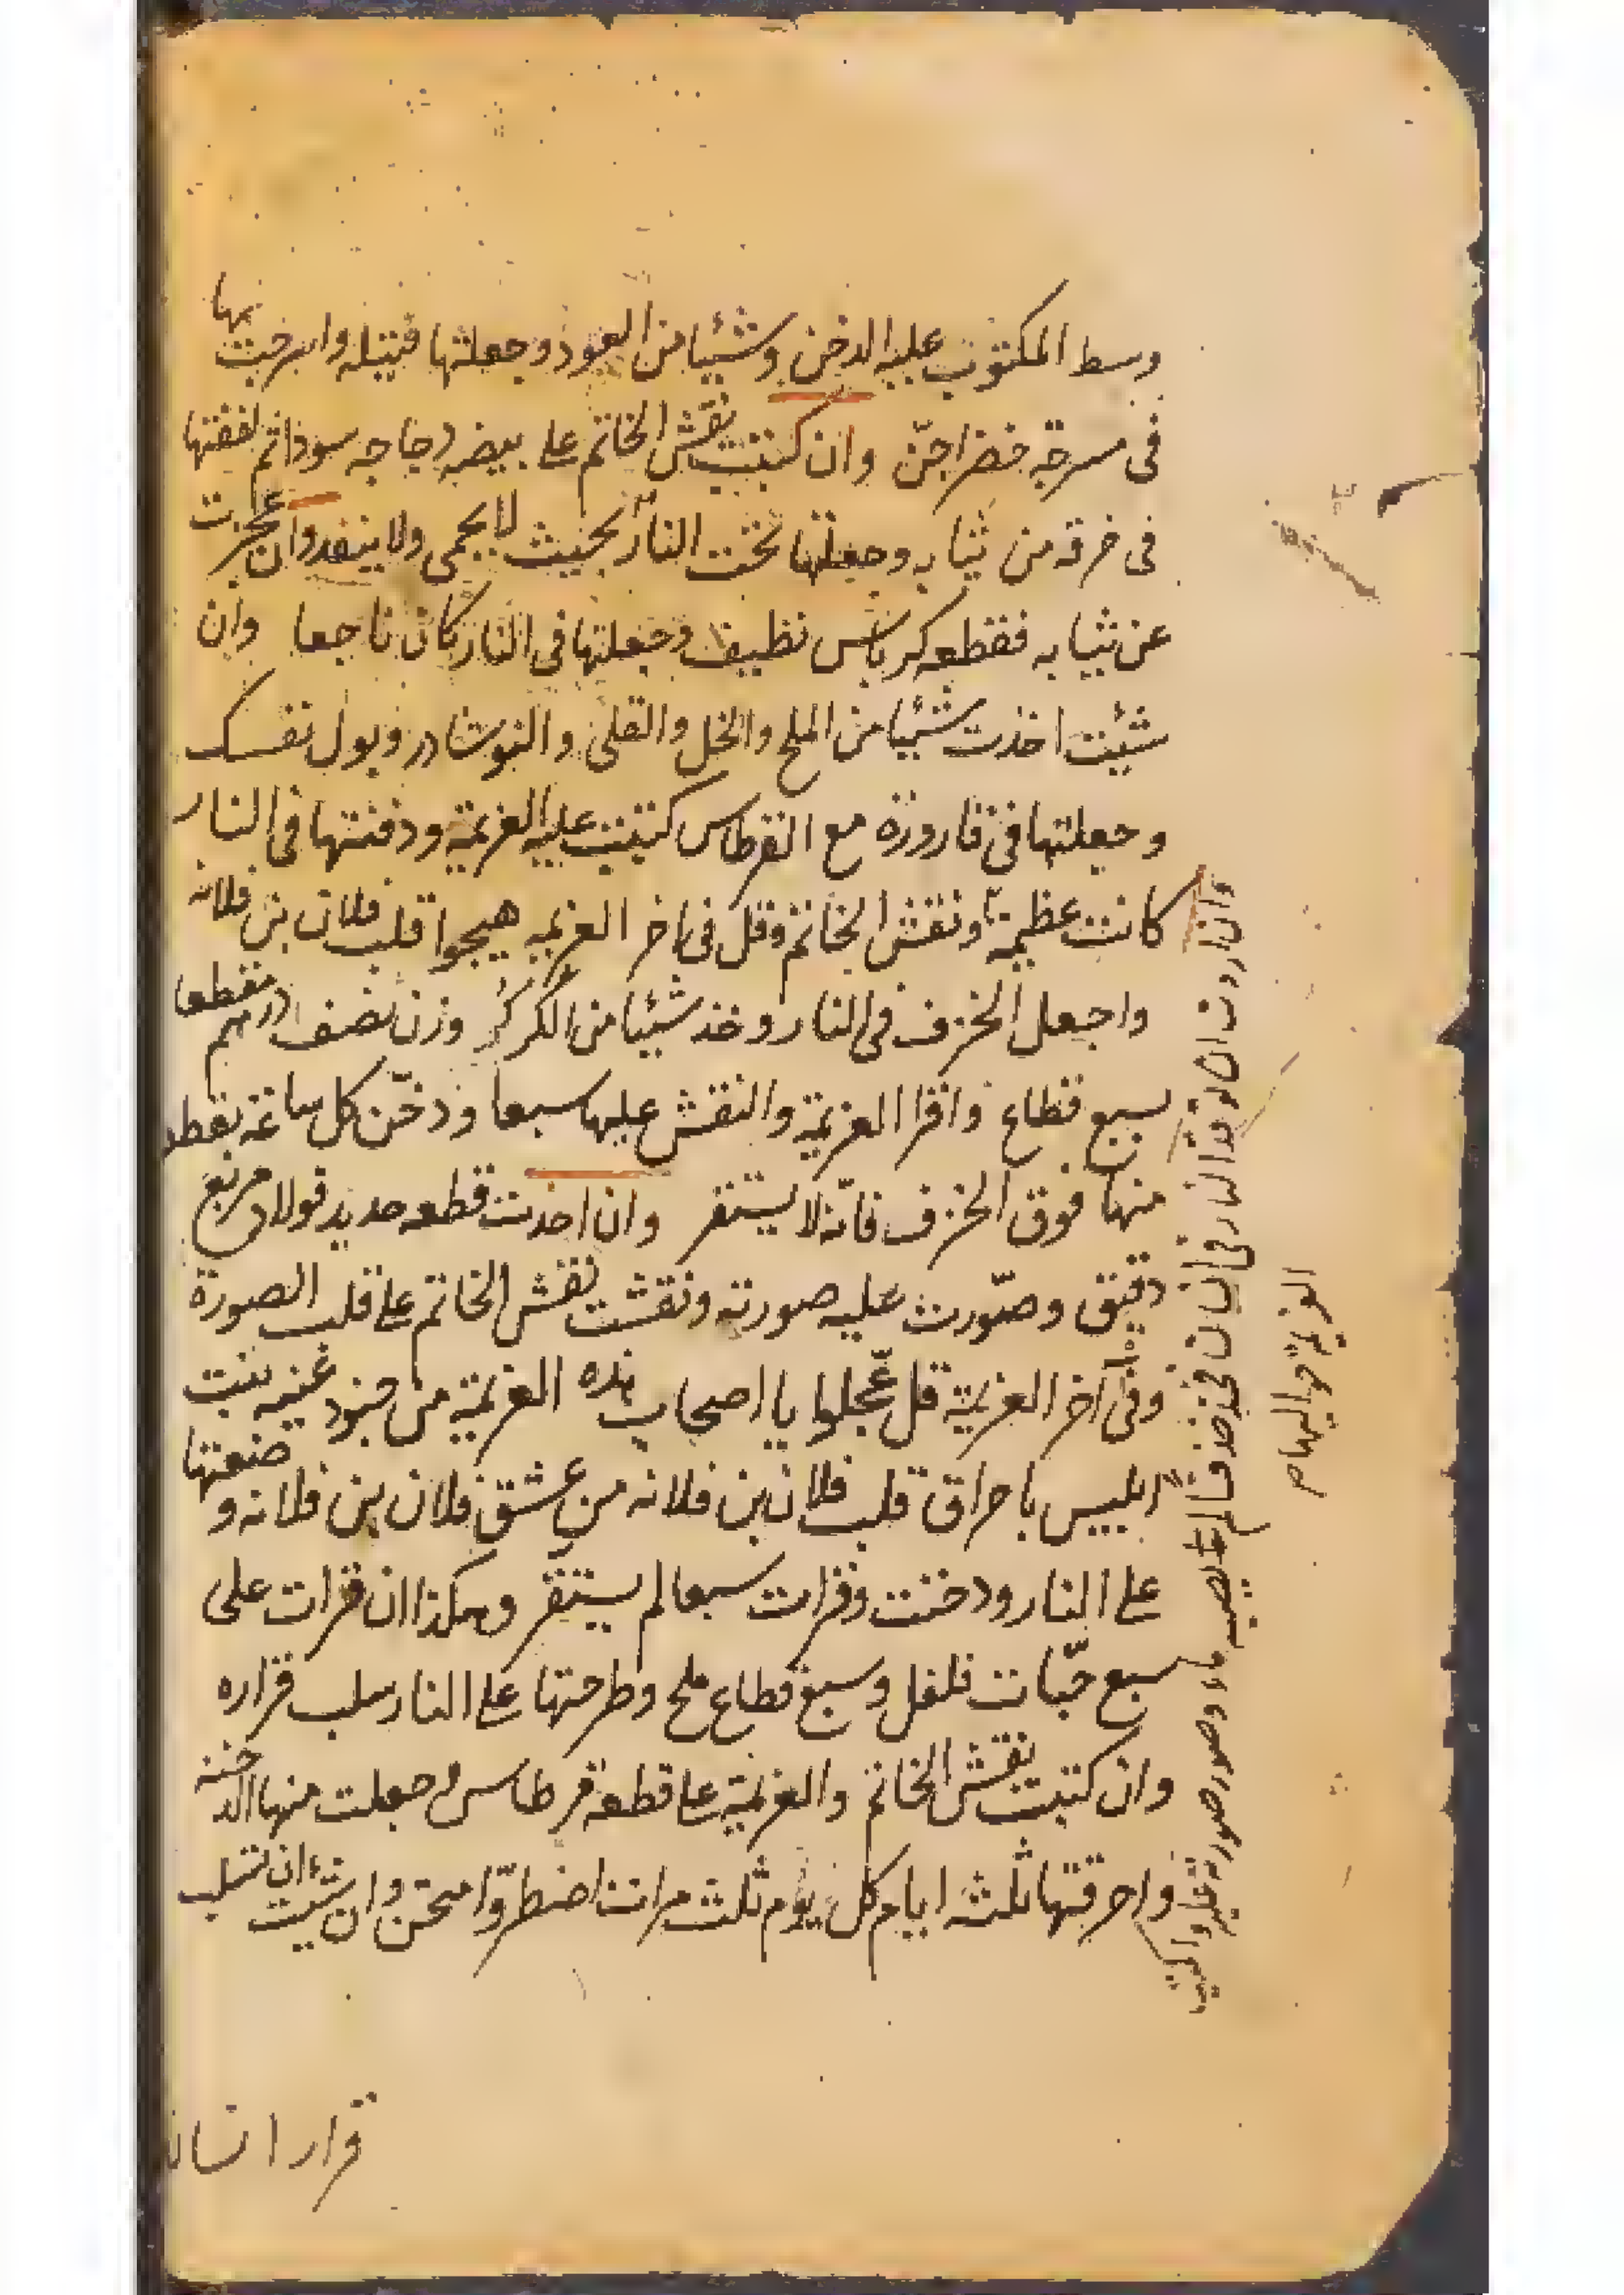 وسط المكتوب عليه الدخن وشيئا من العود وجعلتها فتيله واسرجت بها
فى مسرجة خضرا جنّ وان كتبت نقش الخاتم على بيضه دجاجه سودا ثم لففتها
فى خرقه من ثيابه وجعلتها تحت النار بحيث لا يحمى ولا ينفد وان عجزت
عن ثيابه فقطعه كرباس نظيف وجعلتها فى النار كان ناجعا وان
شئت اخذت شيئا من الملح والخل والقلى والنوشادر وبول نفسك
وجعلتها فى قارورة مع القرطاس كتبت عليه العزيمة ودفنتها فى النار
كانت عظيمة ونقش الخاتم وقل فى اخر العزيمه هيجوا قلب فلان بن فلانه
واجعل الخزف فى النار وخذ شيئا من الكركر وزن نصف درهم مقطعا
سبع قطاع واقرا العزيمة والنقش عليها سبعا ودخّن كل ساعة بقطعه
منها فوق الخزف فانّه لا يستقر وان اخذت قطعه حديد فولاد مربع
دقيق وصوّرت عليه صورته ونقشت نقش الخاتم على قلب الصورة
وفى آخر العزيمة قل عجّلوا يا اصحاب هذه العزيمة من جنود عنيه بنت
ابليس باحراق قلب فلان بن فلانه من عشق فلان بن فلانه و ضعتها
على النار ودخنت وقرات سبعا لم يستقر وهكذا ان قرات على
سبع حبّات فلفل وسبع قطاع ملح وطرحتها على النار سلب قراره
وان كتبت نقش الخاتم والعزيمة على قطعة قرطاس وجعلت منها الدخنه
واحرقتها ثلثه ايام كل يوم ثلث مرات اضطرّوا محن وان شئت ان تسلب
قرار انسان
وان اردت ان توقد النار فى انسان فخذ
وصور صورته عليه واكتب
العزيمة حواليها صح